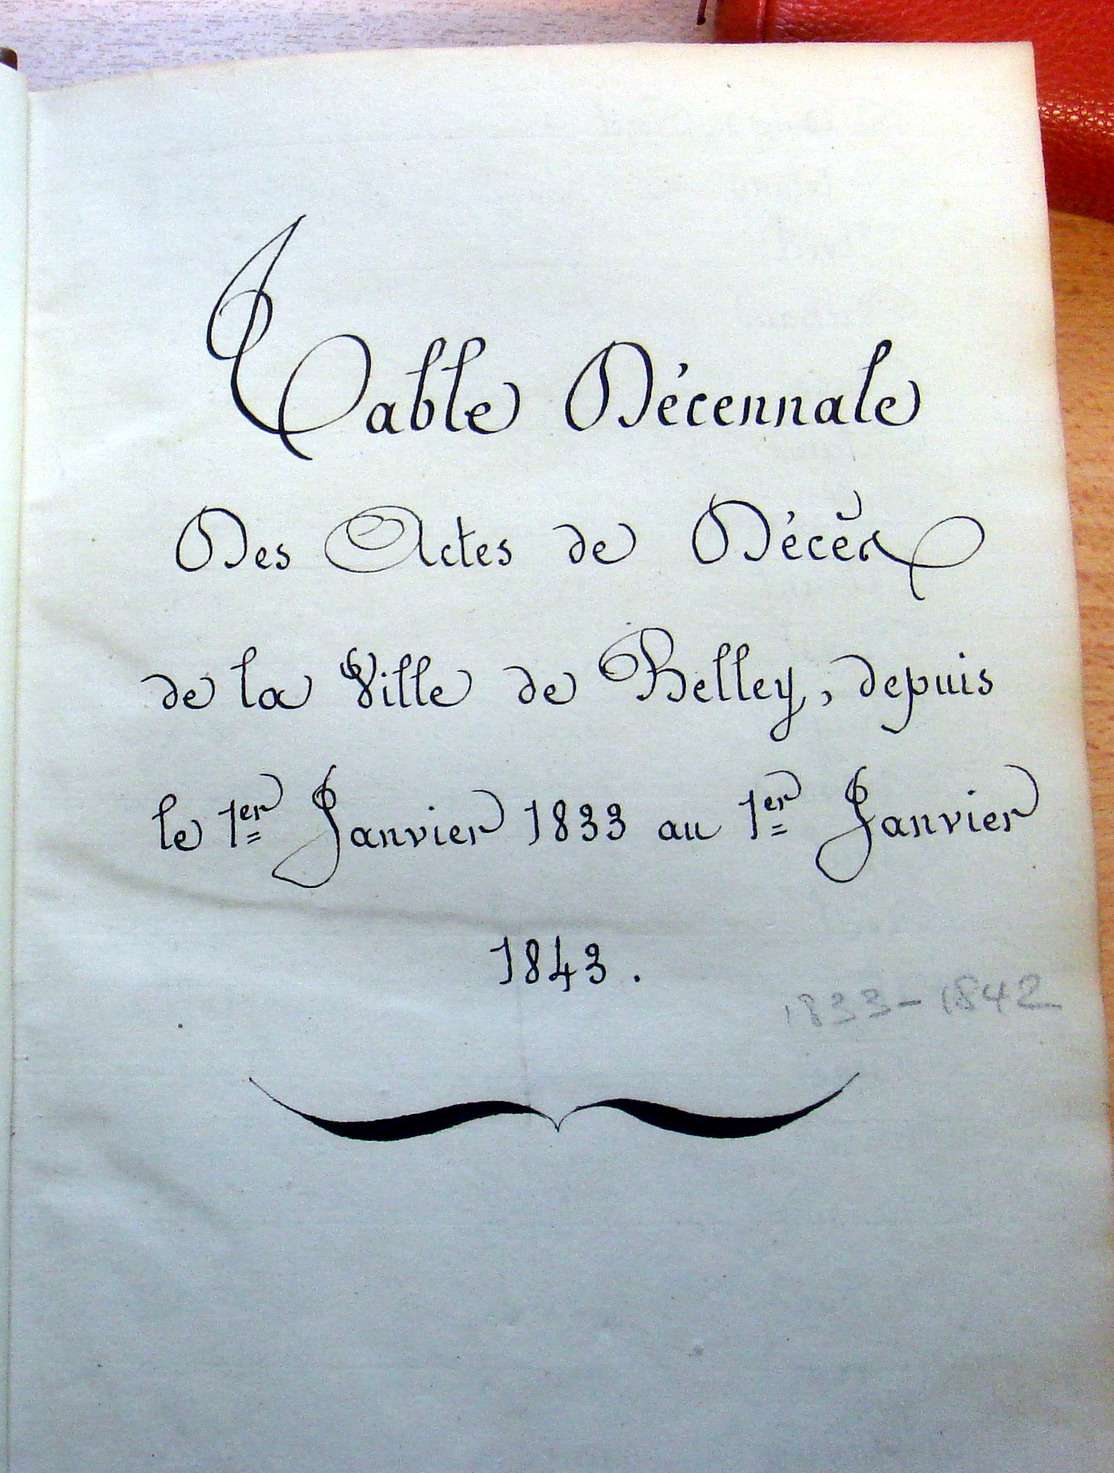 Table Décennale
Des Actes de Décès
de la Ville de Belley, depuis
le 1er Janvier 1833 au 1er Janvier
1843.
1833-1842